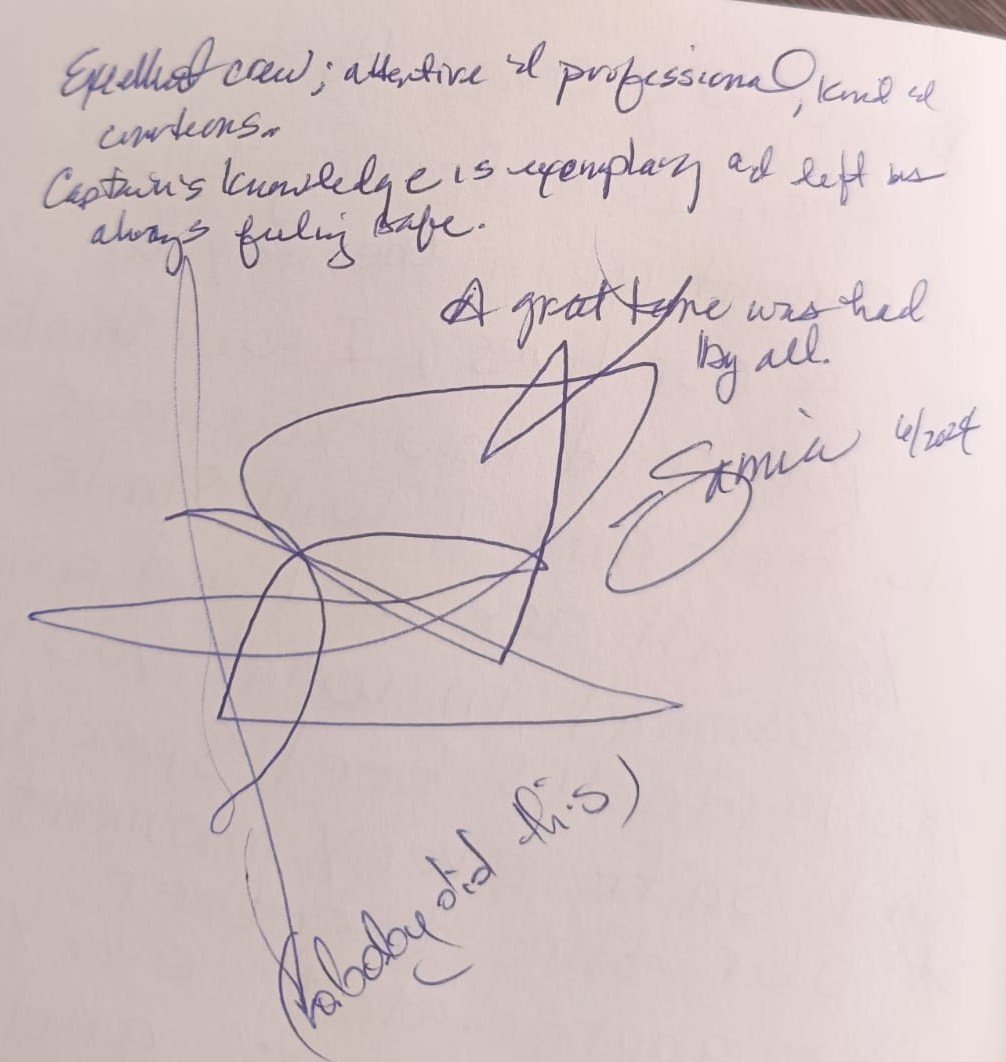 Excellent crew; attentive & professional, kind &
courteous.
Captain's knowledge is exemplary and left us
always feeling safe.
A great time was had
by all.
Samia 6/2024
(a baby did this)